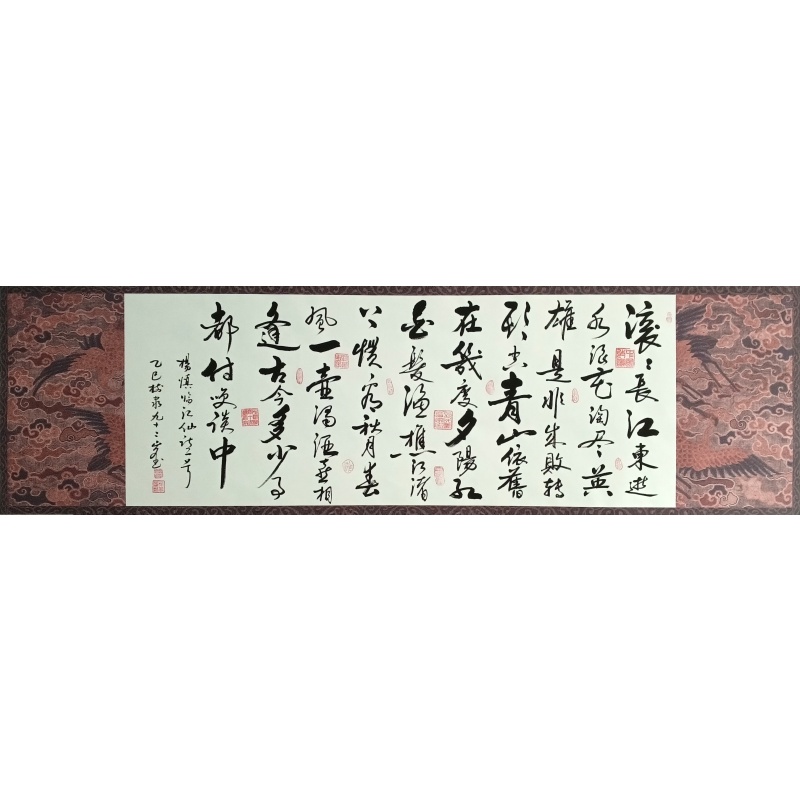 滚〻長江東逝
水浪花淘尽英
雄是非成敗转
頭空青山依舊
在幾度夕陽紅
白髮漁樵江渚
上慣看秋月春
風一壶濁酒喜相
逢古今多少事
都付笑談中
楊慎臨江仙詞一首
乙巳樹泉九十二岁书